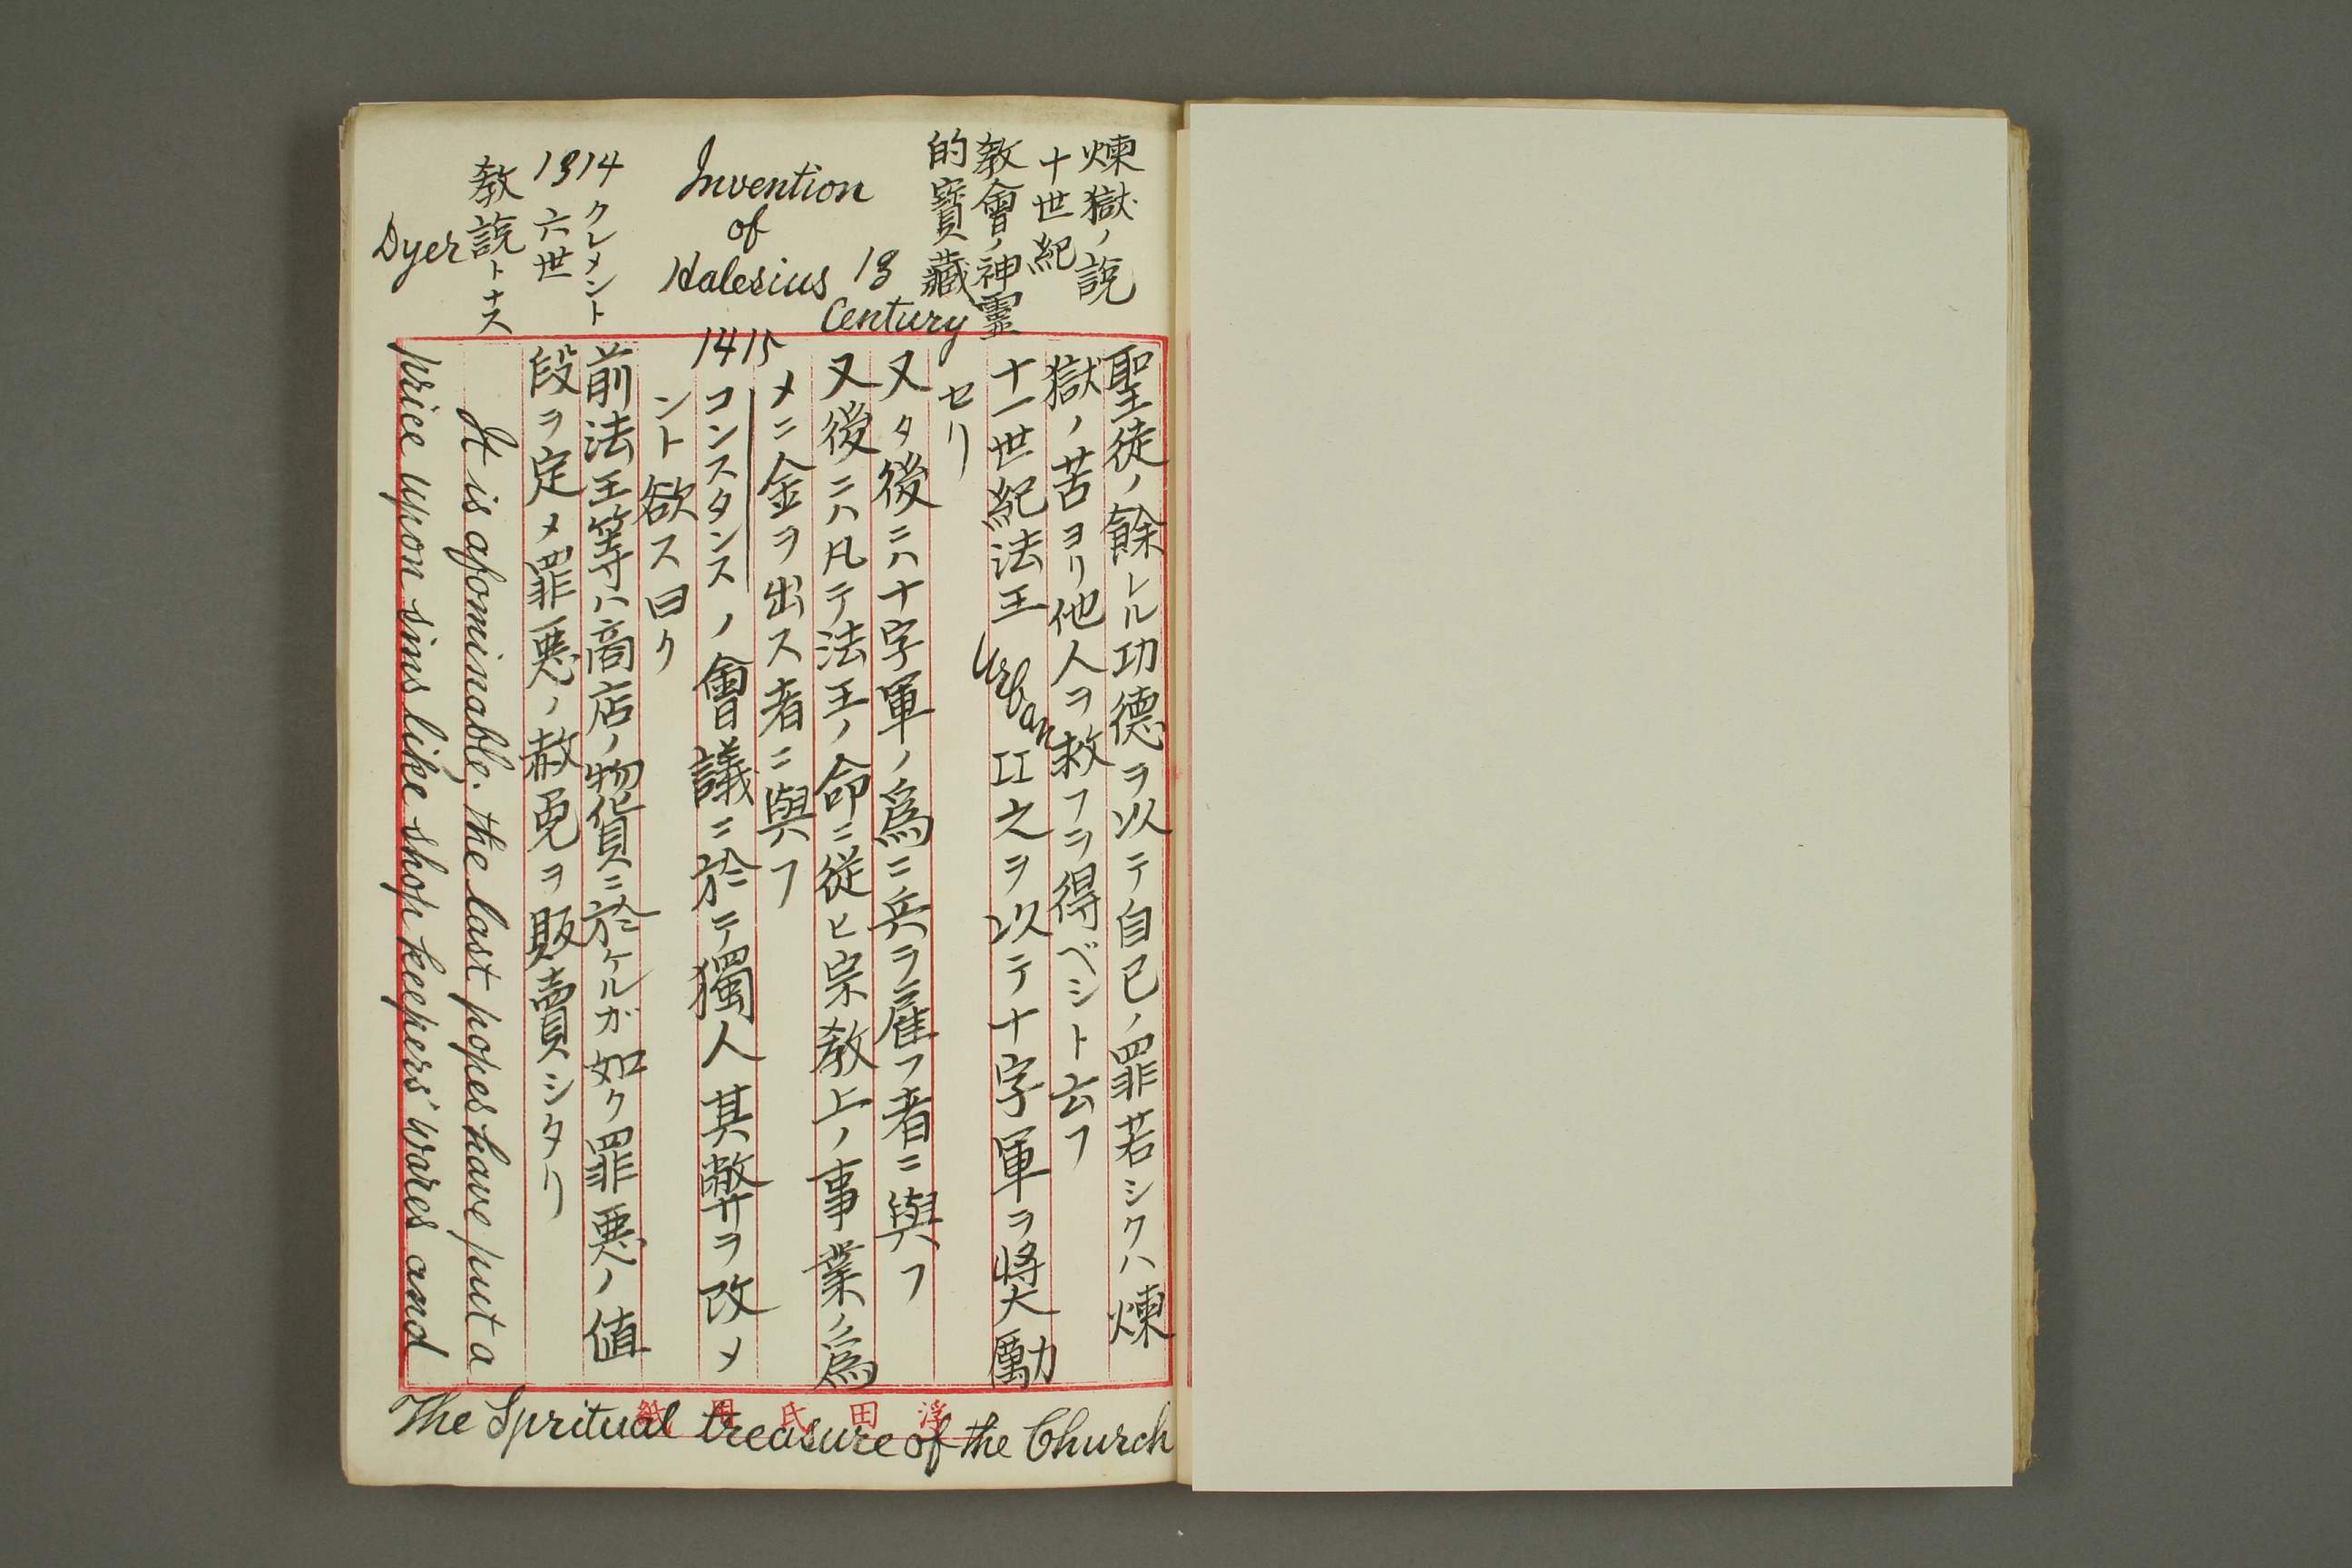 煉獄ノ説
十世紀
教會ノ神靈
的寶藏
Invention
of
Halesius 13
Century
1314
クレメント
六世
教説トナス
Dyer
聖徒ノ餘レル功德ヲ以テ自己ノ罪若シクハ煉
獄ノ苦ヨリ他人ヲ救フヲ得ベシト云フ
十一世紀法王 Urban II之ヲ以テ十字軍ヲ奬勵
セリ
又タ後ニハ十字軍ノ爲ニ兵ヲ雇フ者ニ與フ
又後ニハ凡テ法王ノ命ニ從ヒ宗教上ノ事業ノ爲
メニ金ヲ出ス者ニ與フ
1415
コンスタンスノ會議ニ於テ獨人其弊ヲ改メ
ント欲ス曰ク
前法王等ハ商店ノ物貨ニ於ケルガ如ク罪悪ノ値
段ヲ定メ罪悪ノ赦免ヲ販賣シタリ
It is afominable. the last popes have put a
price upon sins like shop keepers' wares and
The Spritual treasure of the Church
浮田氏用紙